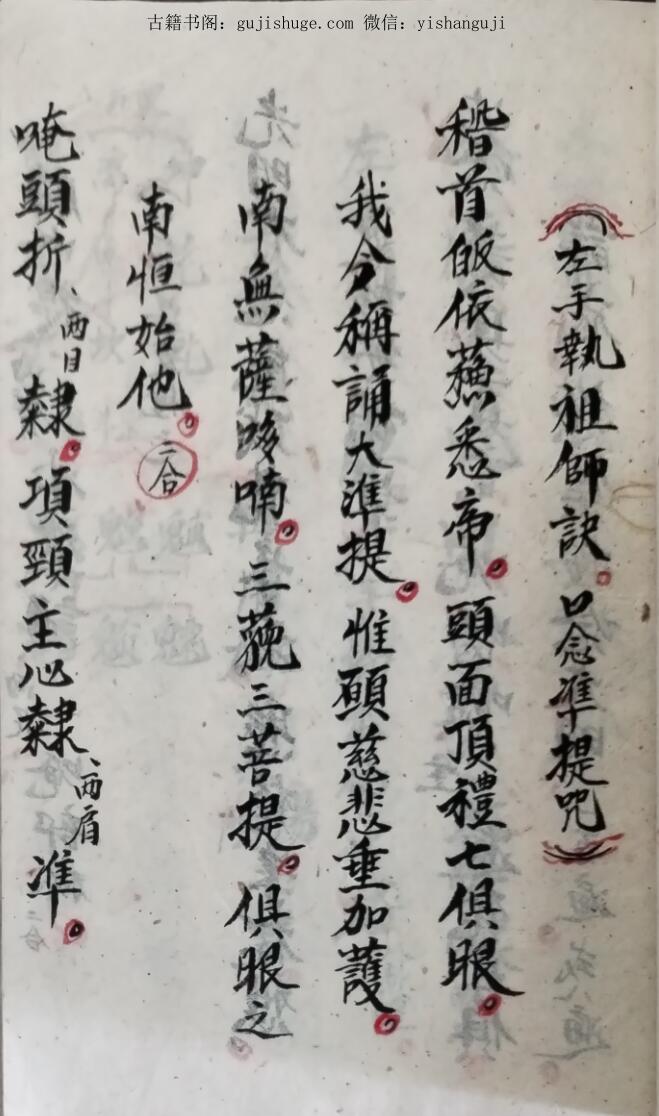 古籍书阁：gujishuge.com 微信：yishanguji
（左手執祖師訣。口念準提咒）
稽首皈依蘓悉帝。頭面頂禮七俱眼。
我今稱誦大準提。惟願慈悲垂加護。
南無薩哆喃。三藐三菩提。俱眼之
南恒始他。二合
唵頭折、兩目隸。項頸主心隸、兩肩準。